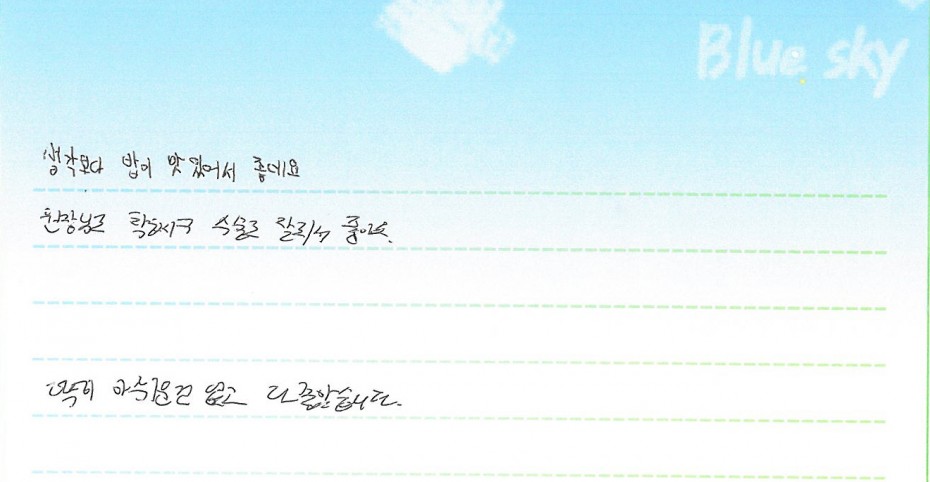 Blue sky
생각보다 밥이 맛있어서 좋네요
원장님도 확실하구 수술도 잘되서 좋아요.
딱히 아쉬운건 없고 다 좋았습니다.